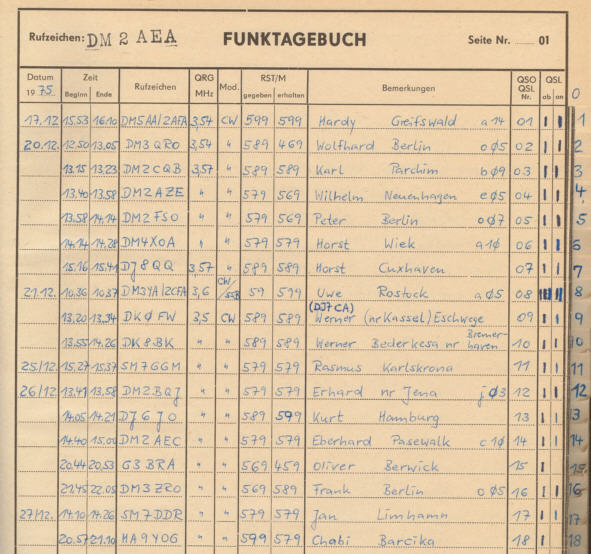 Rufzeichen: DM 2 AEA FUNKTAGEBUCH Seite Nr. 01
Datum Zeit Rufzeichen QRG Mod. RST/M Bemerkungen QSO QSL
1975. Beginn Ende MHz gegeben erhalten QSL Nr. ab an 0
17.12. 15.53 16.10 DM5AA/2AFA 3,54 CW 599 599 Hardy Greifswald a14 01 1
20.12. 12.50 13.05 DM3QRO 3,54 " 589 469 Wolfhard Berlin oØ5 02 2
13.15 13.23 DM2CQB 3,57 " 589 589 Karl Parchim bØ9 03 3
13.40 13.58 DM2AZE " " 579 569 Wilhelm Neuenhagen eØ5 04 4
13.58 14.14 DM2FSO " " 579 569 Peter Berlin oØ7 05 5
14.14 14.28 DM4XOA " " 579 579 Horst Wiek a1Ø 06 6
15.16 15.41 DJ8QQ 3,57 " 589 589 Horst Cuxhaven 07 7
21.12. 10.36 10.37 DM3YA/2CFA 3,6 CW/SSB 59 599 Uwe Rostock aØ5 08 8
(DJ7CA)
13.20 13.34 DKØFW 3,5 CW 589 589 Werner (nr Kassel) Eschwege 09 9
13.55 14.26 DK8BK " " 589 589 Werner Bederkesa nr Bremerhaven 10 10
25/12. 15.27 15.37 SM7GGM " " 579 579 Rasmus Karlskrona 11 11
26/12. 13.41 13.58 DM2BQJ " " 579 579 Erhard nr Jena jØ3 12 12
14.05 14.21 DJ6JO " " 589 599 Kurt Hamburg 13 13
14.40 15.00 DM2AEC " " 579 579 Eberhard Pasewalk c1Ø 14 14
20.44 20.53 G3BRA " " 569 459 Oliver Berwick 15 15.
21.45 22.05 DM3ZRO " " 569 589 Frank Berlin oØ5 16 16
27/12. 14.10 14.26 SM7DDR " " 579 579 Jan Limhamn 17 17
20.57 21.10 HA9YOG " " 599 579 Chabi Barcika 18 18